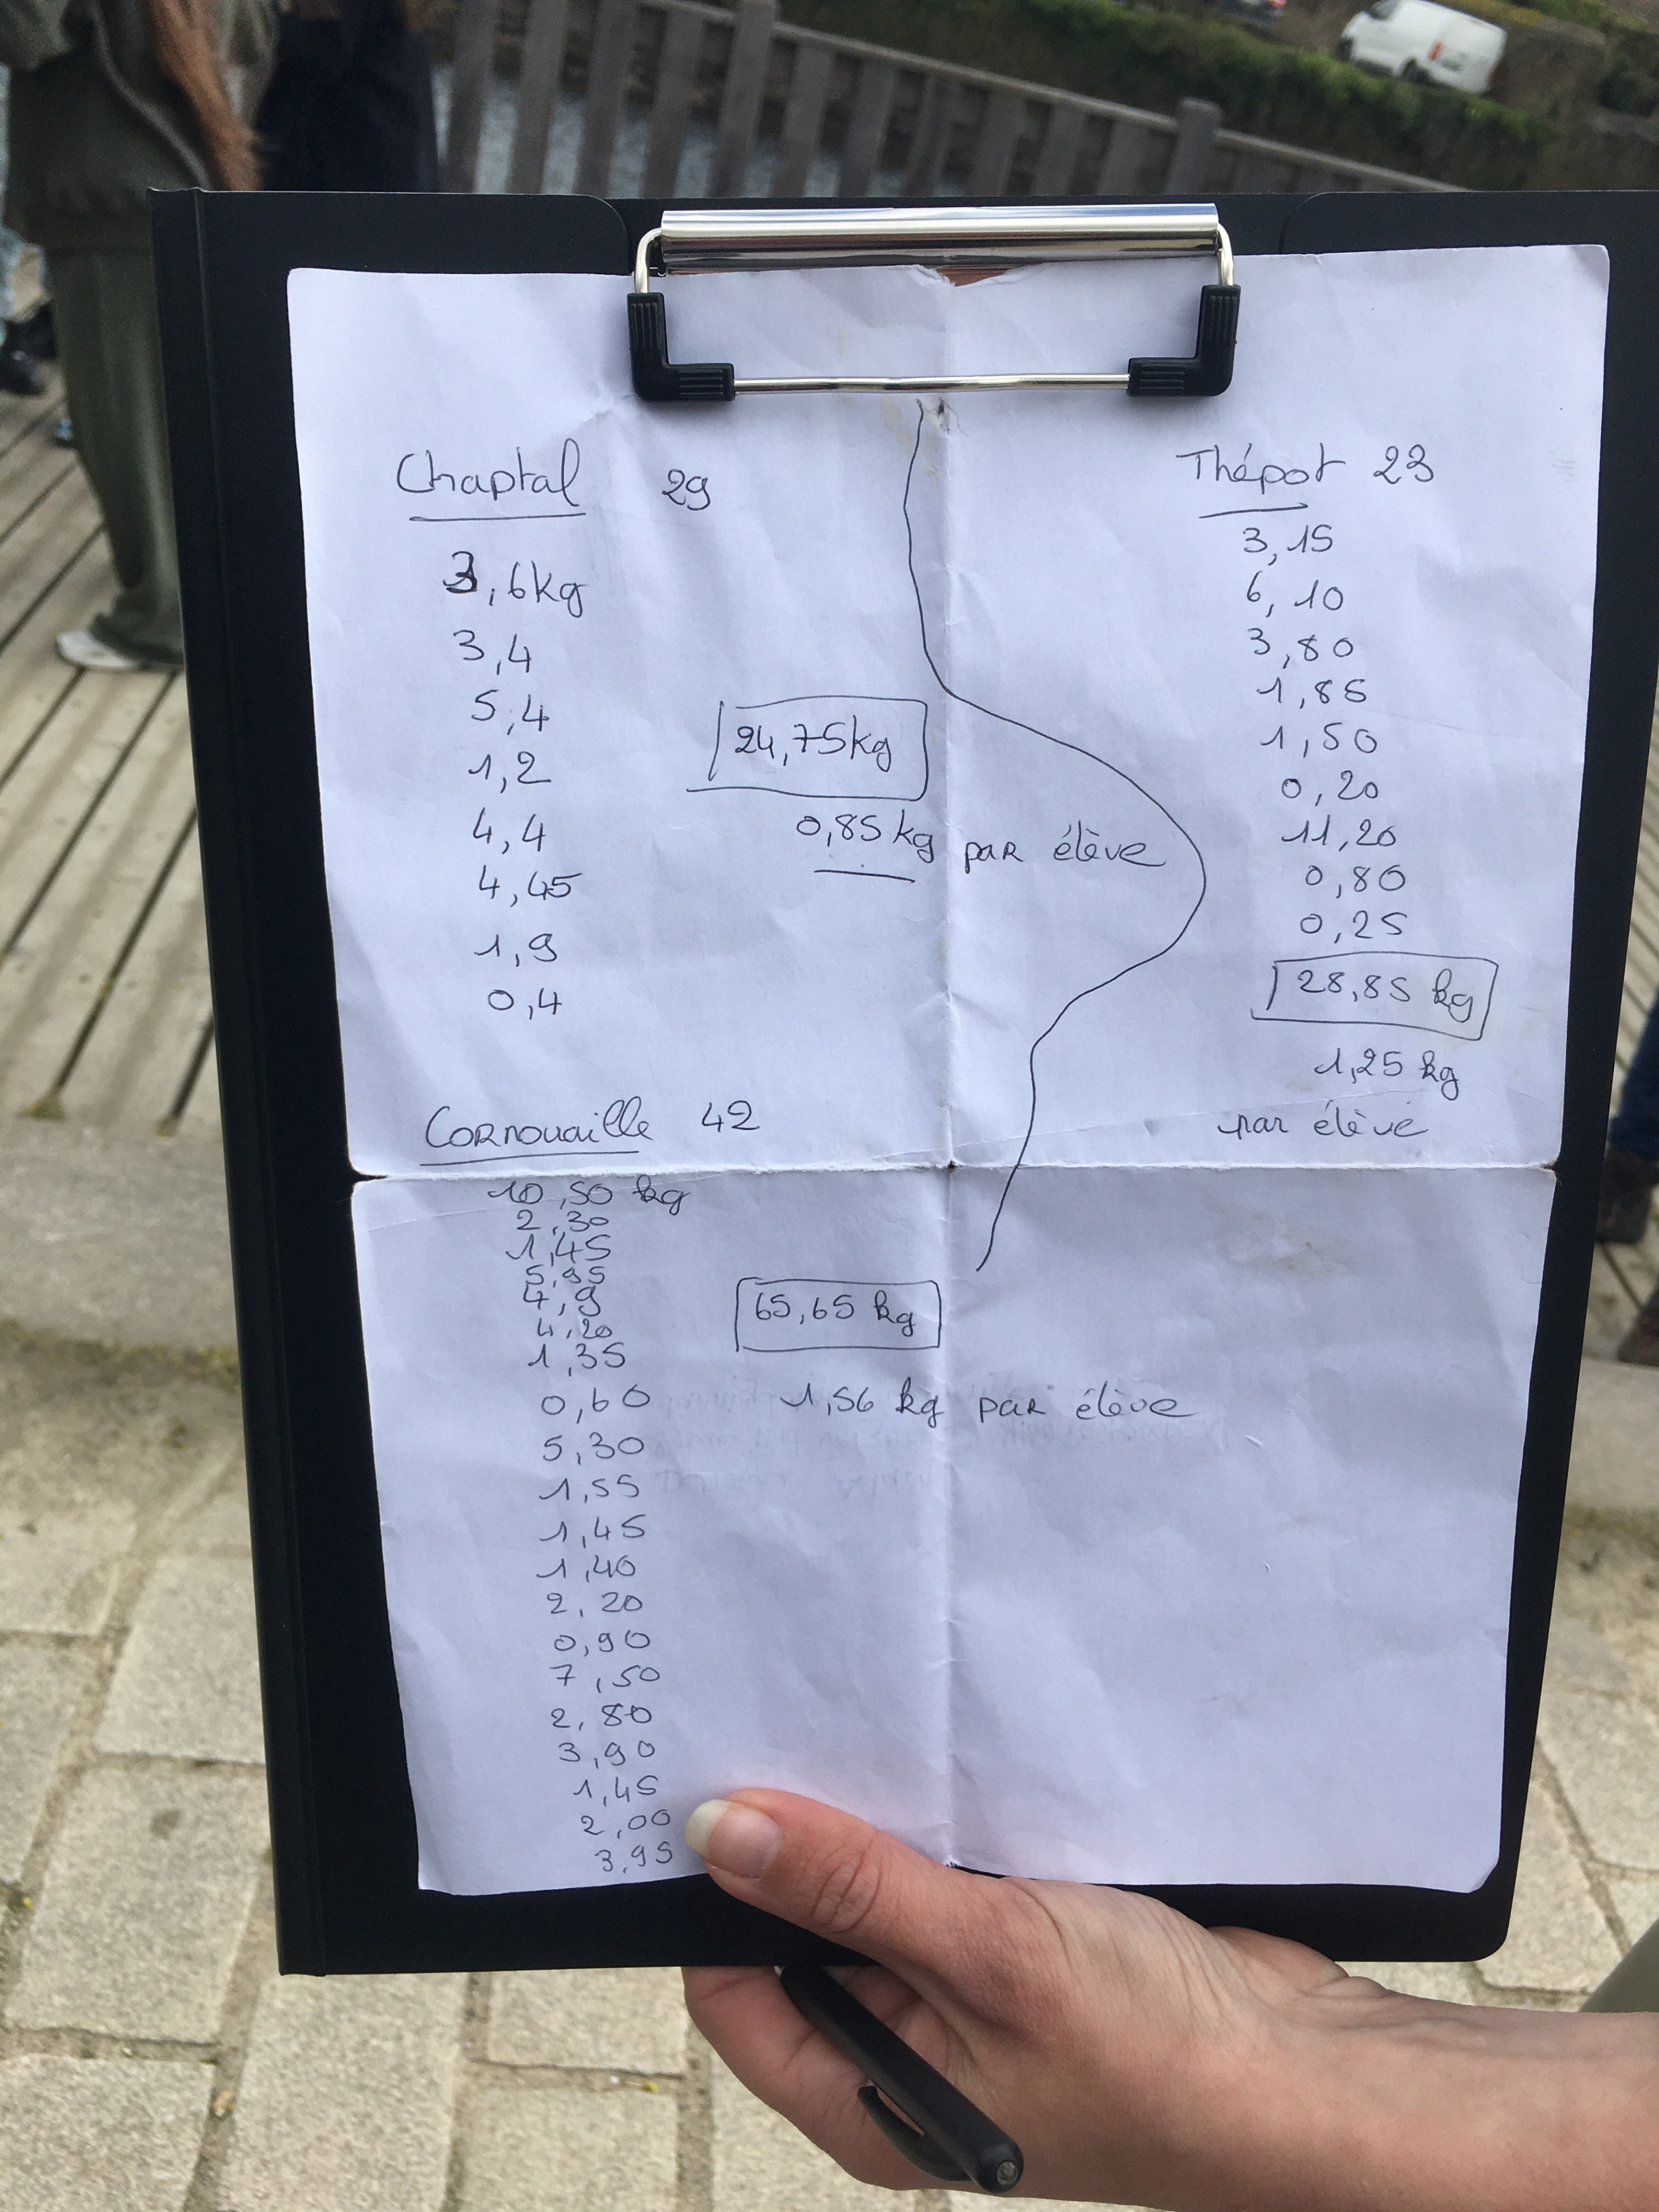 Chaptal 29
3,6kg
3,4
5,4
1,2
4,4
4,45
1,9
0,4
24,75kg
0,85 kg par élève
Thépot 23
3,15
6,10
3,80
1,85
1,50
0,20
11,20
0,80
0,25
28,85 kg
1,25 kg
par élève
Cornouaille 42
10,50 kg
2,30
1,45
5,95
4,9
4,20
1,35
0,60
5,30
1,55
1,45
1,40
2,20
0,90
7,50
2,80
3,90
1,45
2,00
3,95
65,65 kg
1,56 kg par élève